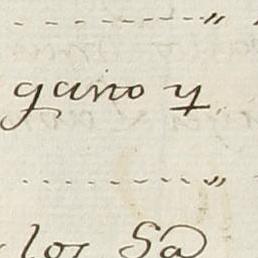 gano y
los Sa